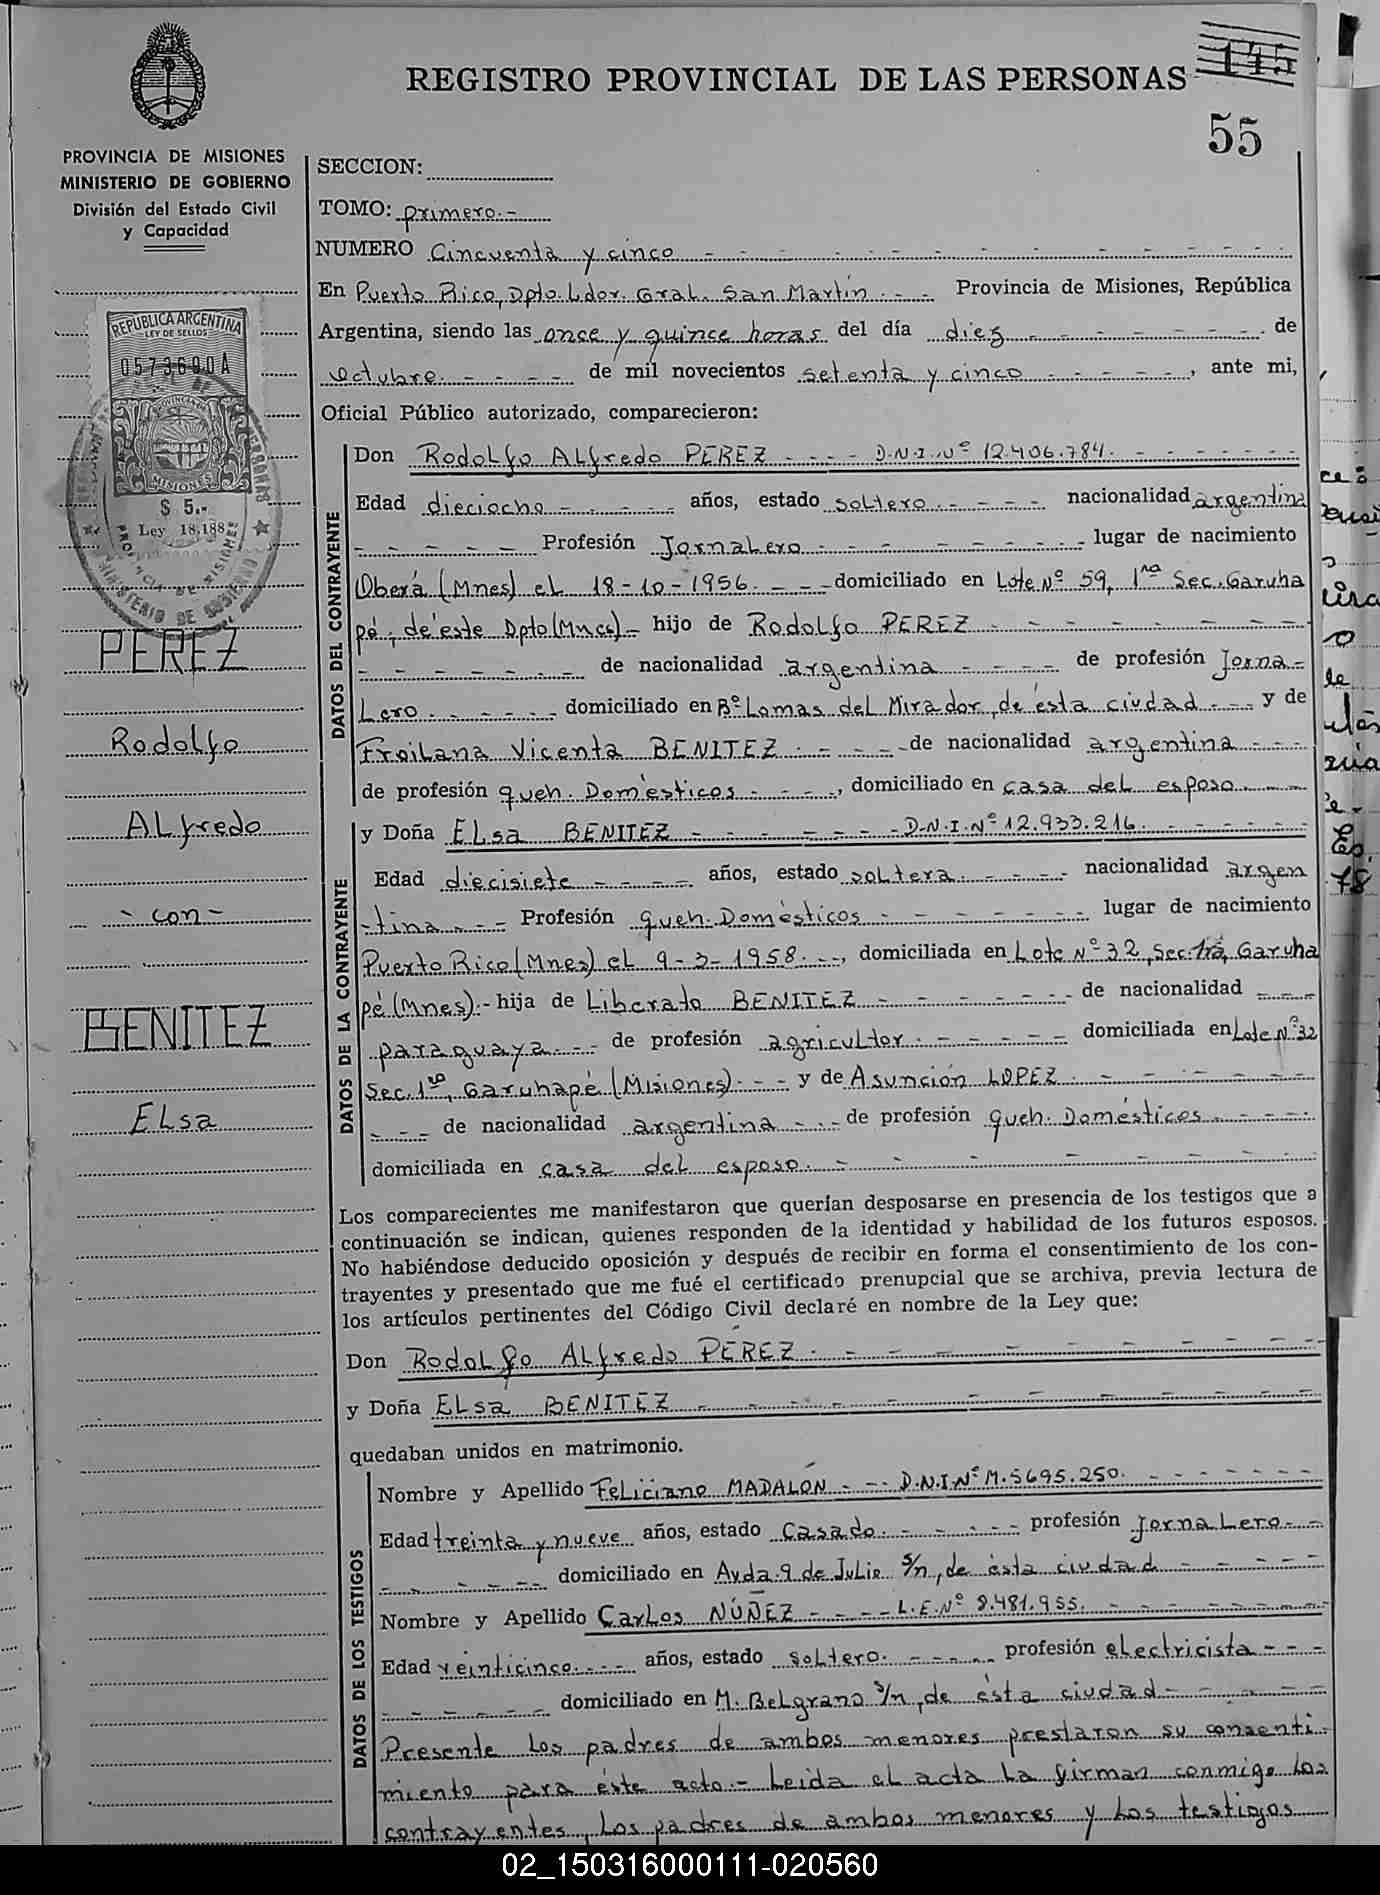 REGISTRO PROVINCIAL DE LAS PERSONAS
145
55
PROVINCIA DE MISIONES
MINISTERIO DE GOBIERNO
División del Estado Civil
y Capacidad
REPUBLICA ARGENTINA
LEY DE SELLOS
0573690A
PROVINCIA DE
MISIONES
$ 5.-
Ley 18.188
PEREZ
Rodolfo
Alfredo
- con -
BENITEZ
Elsa
SECCION:
TOMO: primero.-
NUMERO Cincuenta y cinco
En Puerto Rico, Dpto. Ldor. Gral. San Martín.- Provincia de Misiones, República
Argentina, siendo las once y quince horas del día diez de
octubre. de mil novecientos setenta y cinco, ante mi,
Oficial Público autorizado, comparecieron:
DATOS DEL CONTRAYENTE
Don Rodolfo Alfredo PEREZ - D.N.I. Nº 12.406.784.
Edad dieciocho años, estado soltero. nacionalidad argentina
Profesión Jornalero lugar de nacimiento
Oberá (Mnes) el 18-10-1956. domiciliado en Lote Nº 59, 1ra Sec. Garuha
pé, de éste Dpto (Mnes) - hijo de Rodolfo PEREZ
de nacionalidad argentina de profesión Jorna-
lero. domiciliado en Bº Lomas del Mirador, de ésta ciudad y de
Froilana Vicenta BENITEZ. de nacionalidad argentina
de profesión queh. Domésticos, domiciliado en casa del esposo
DATOS DE LA CONTRAYENTE
y Doña Elsa BENITEZ - D.N.I. Nº 12.933.216.
Edad diecisiete años, estado soltera. nacionalidad argen
-tina. Profesión queh. Domésticos lugar de nacimiento
Puerto Rico (Mnes) el 9-3-1958., domiciliada en Lote Nº 32, Sec. 1ra, Garuha
pé (Mnes).- hija de Liberato BENITEZ de nacionalidad
paraguaya. de profesión agricultor. domiciliada en Lote Nº 32
Sec. 1ra, Garuhapé (Misiones). y de Asunción LOPEZ.
de nacionalidad argentina de profesión queh. Domésticos.
domiciliada en casa del esposo.
Los comparecientes me manifestaron que querían desposarse en presencia de los testigos que a
continuación se indican, quienes responden de la identidad y habilidad de los futuros esposos.
No habiéndose deducido oposición y después de recibir en forma el consentimiento de los con-
trayentes y presentado que me fué el certificado prenupcial que se archiva, previa lectura de
los artículos pertinentes del Código Civil declaré en nombre de la Ley que:
Don Rodolfo Alfredo PEREZ.
y Doña Elsa BENITEZ
quedaban unidos en matrimonio.
DATOS DE LOS TESTIGOS
Nombre y Apellido Feliciano MADALÓN - D.N.I. Nº M. 5695.250.
Edad treinta y nueve años, estado casado. profesión Jornalero
domiciliado en Avda. 9 de Julio s/n, de ésta ciudad
Nombre y Apellido Carlos NÚÑEZ - L.E. Nº 8.481.955.
Edad veinticinco. años, estado soltero. profesión electricista
domiciliado en M. Belgrano s/n, de ésta ciudad
Presente los padres de ambos menores prestaron su consenti-
miento para éste acto.- Leída el acta la firman conmigo los
contrayentes, los padres de ambos menores y los testigos
02_150316000111-020560